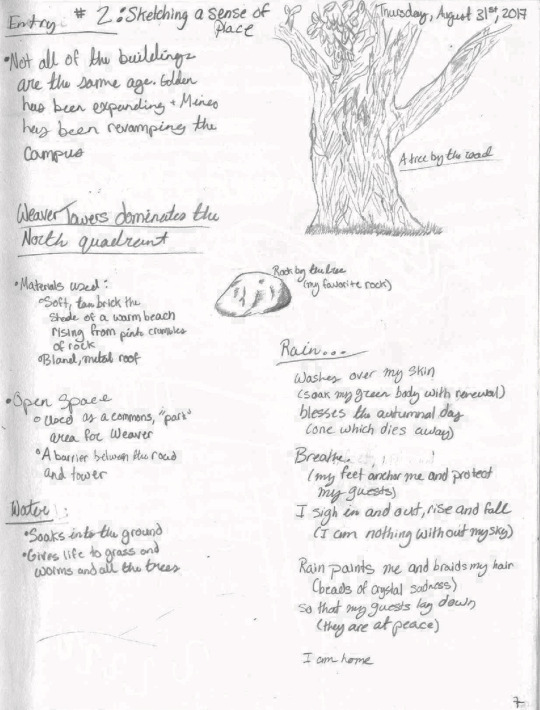 Entry # 2: Sketching a sense of
Place
Thursday, August 31st, 2017
• Not all of the buildings
are the same age. Golden
has been expanding + Mines
has been revamping the
campus
A tree by the road
Weaver Towers dominates the
North quadrant
Rock by the tree
(my favorite rock)
• Materials used:
Soft, tan brick the
shade of a warm beach
rising from pink crumbles
of rock
Bland, metal roof
• Open Space
Used as a commons, "park"
area for Weaver
A barrier between the road
and tower
Water:
• Soaks into the ground
• Gives life to grass and
worms and all the trees
Rain...
Washes over my skin
(soak my green body with renewal)
blesses the autumnal day
(one which dies away)
Breathe
(my feet anchor me and protect
my guests)
I sigh in and out, rise and fall
(I am nothing without my sky)
Rain paints me and braids my hair
(beads of crystal sadness)
so that my guests lay down
(they are at peace)
I am home
7